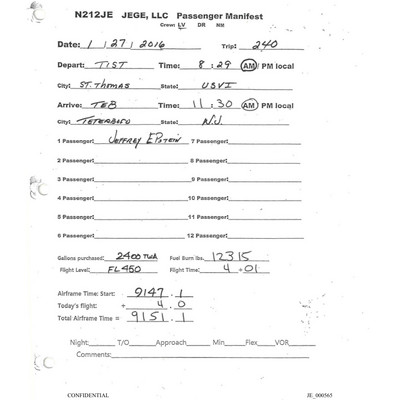 N212JE JEGE, LLC Passenger Manifest
Crew: LV DR NM
Date: 1 / 27 / 2016 Trip: 240
Depart: TIST Time: 8 : 29 AM / PM local
City: ST. THOMAS State: USVI
Arrive: TEB Time: 11 : 30 AM / PM local
City: TETERBORO State: N.J.
1 Passenger: JEFFREY EPSTEIN 7 Passenger:
2 Passenger: 8 Passenger:
3 Passenger: 9 Passenger:
4 Passenger: 10 Passenger:
5 Passenger: 11 Passenger:
6 Passenger: 12 Passenger:
Gallons purchased: 2400 Fuel Burn lbs. 12315
Flight Level: FL450 Flight Time: 4 +01
Airframe Time: Start: 9147 . 1
Today's flight: + 4 . 0
Total Airframe Time = 9151 . 1
Night: T/O Approach Min Flex VOR
Comments:
CONFIDENTIAL JE_000565